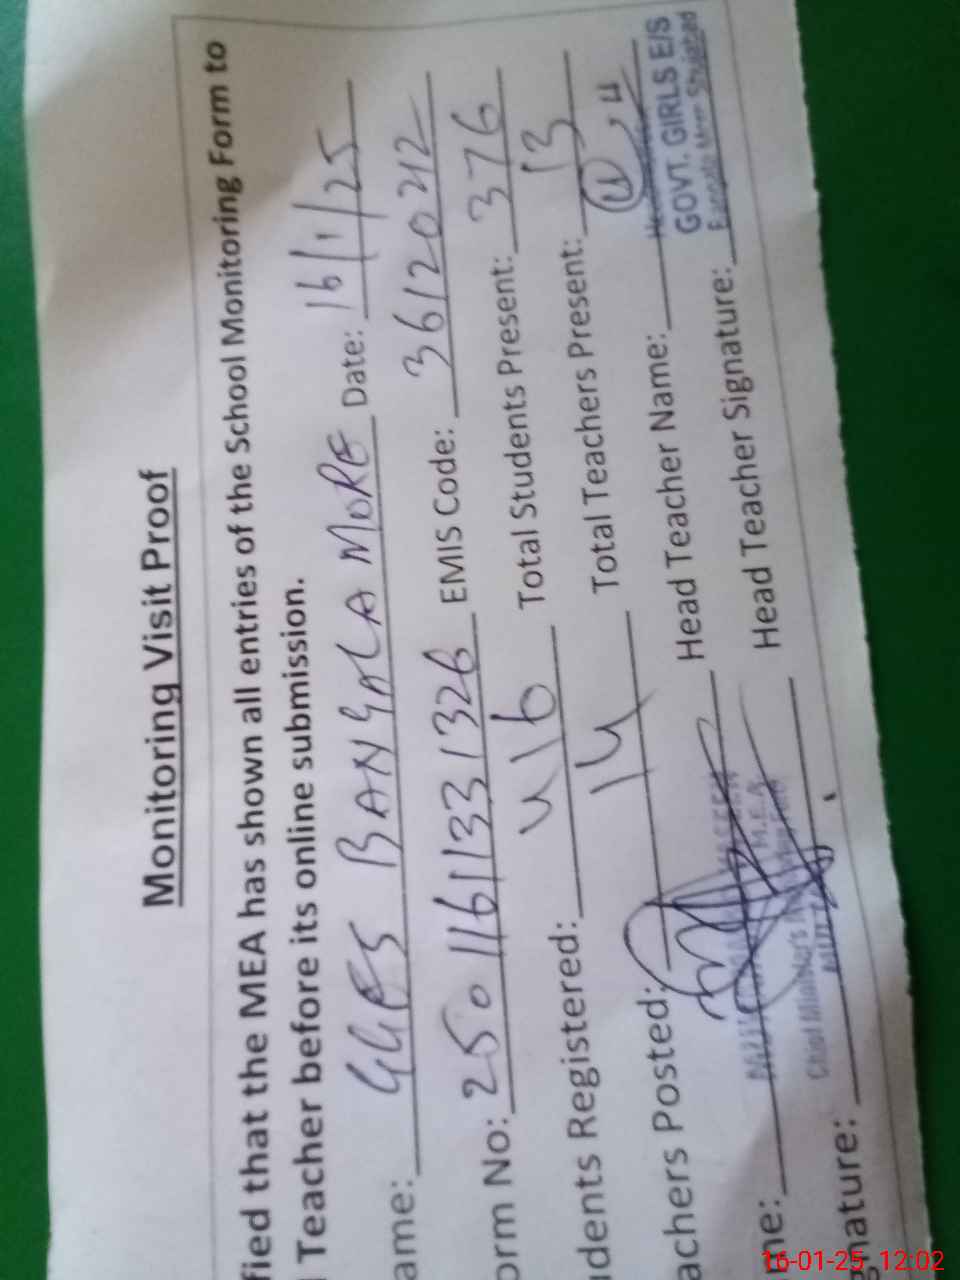 Monitoring Visit Proof
fied that the MEA has shown all entries of the School Monitoring Form to
Teacher before its online submission.
ame: GGES BANGALA MORE Date: 16/1/25
orm No: 25011611331326 EMIS Code: 36120212
udents Registered: 416 Total Students Present: 376
achers Posted: 14 Total Teachers Present: 13
me: Head Teacher Name:
GOVT. GIRLS E/S
gnature: Head Teacher Signature:
M.E.A
Chief Minister's
16-01-25 12:02